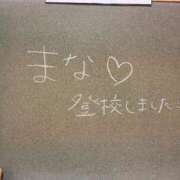 まな♡
登校しました